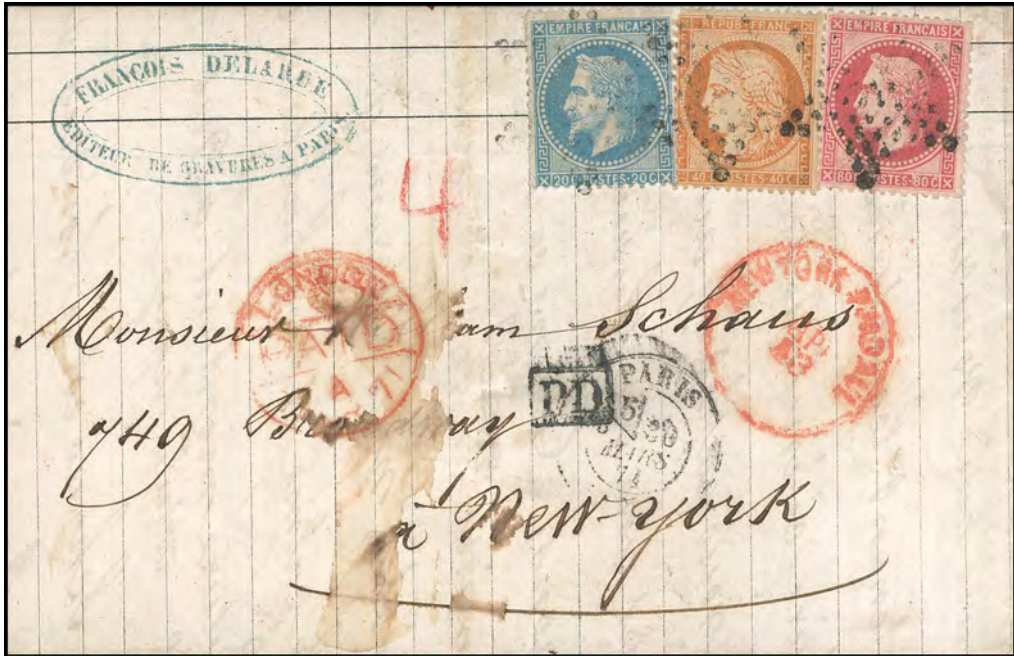 FRANÇOIS DELARUE
EDITEUR DE GRAVURES A PARIS
EMPIRE FRANÇAIS
20C POSTES 20C
REPUB FRANC
40C POSTES 40C
EMPIRE FRANÇAIS
80C POSTES 80C
4
LONDON
A
71
NEW YORK PAID ALL
Monsieur am Schaus
PD
PARIS
MARS
71
749 Broadway
à New-york